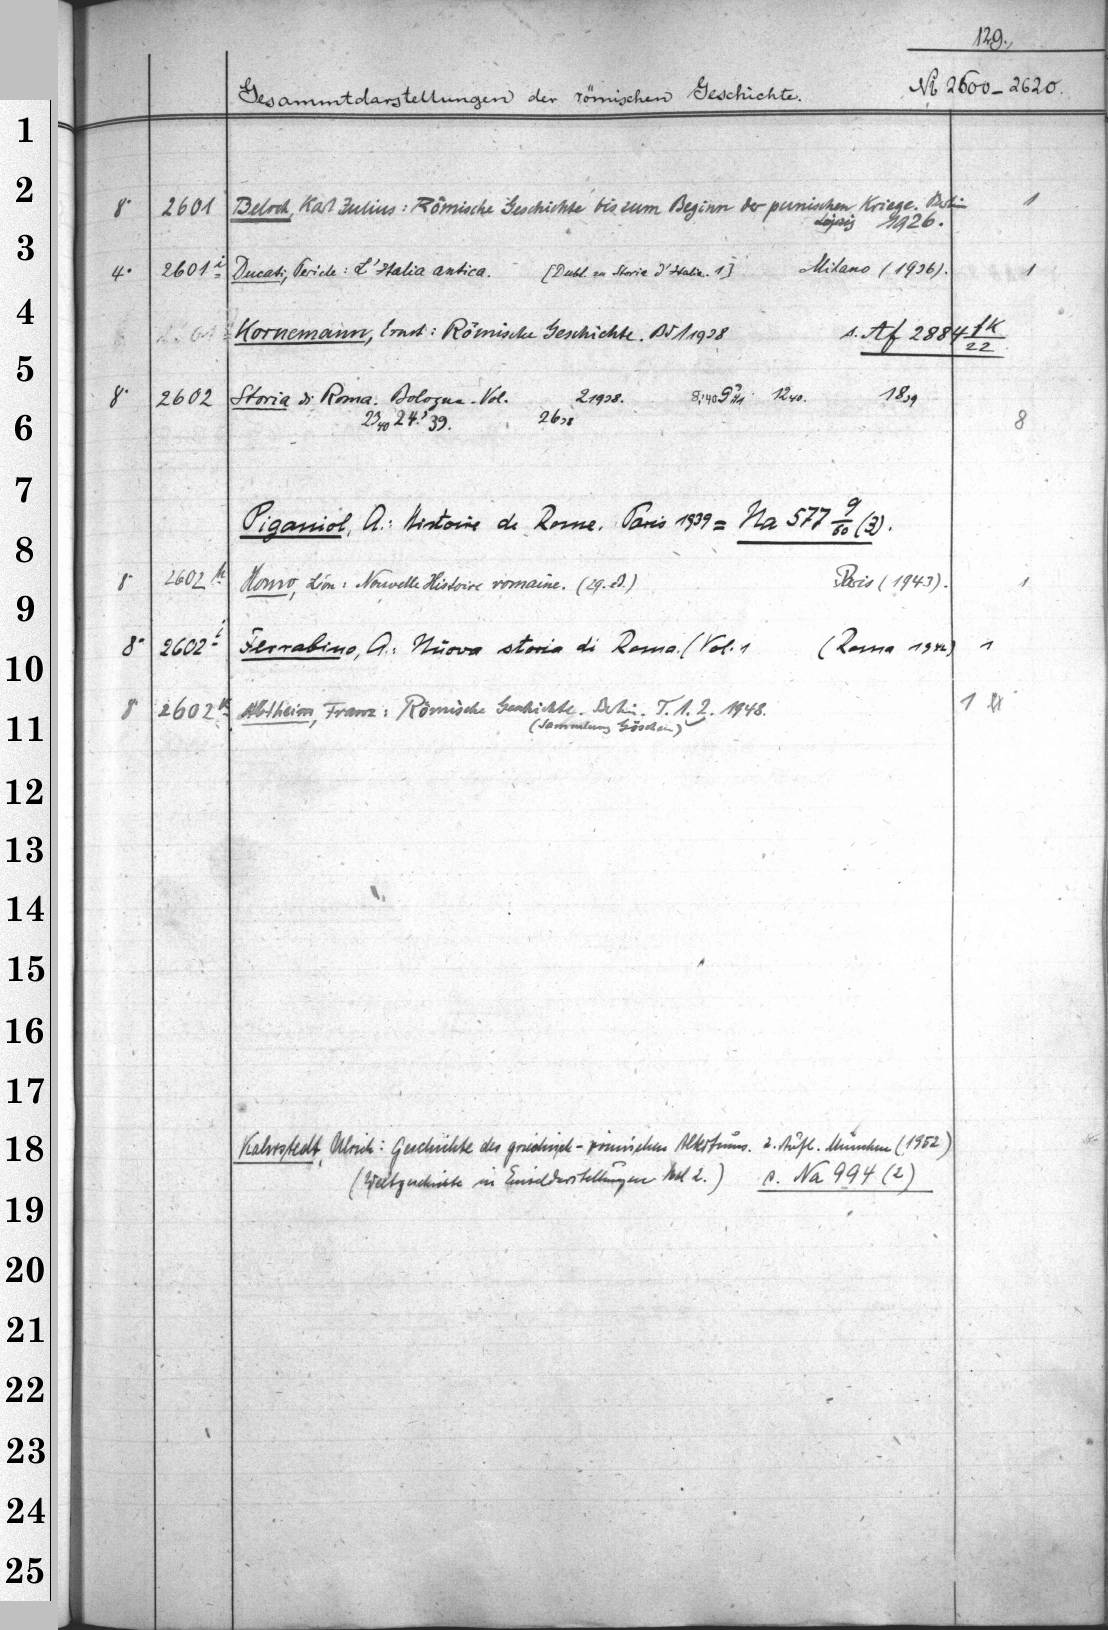 129.
Gesammtdarstellungen der römischen Geschichte. № 2600-2620.
1
2
8° 2601 Beloch, Karl Julius: Römische Geschichte bis zum Beginn der punischen Kriege. Berlin 1
Leipzig 1926.
3
4° 2601 i Ducati, Pericle: L'Italia antica. [Dubl. zu Storia d'Italia. 1] Milano (1936). 1
4
Kornemann, Ernst: Römische Geschichte. Bd 1 1938 s. Af 2884 fk/22
5
8° 2602 Storia di Roma. Bologna. Vol. 2 1938. 12 40. 18 39
6
23 40 24. 39. 26 38 8
7
Piganiol, A.: Histoire de Rome. Paris 1939 = Na 577 9/60 (3).
8
8° 2602 Homo, Léon: Nouvelle Histoire romaine. (29. éd.) Paris (1943). 1
9
8° 2602 i Ferrabino, A.: Nuova storia di Roma. (Vol. 1 (Roma 1942) 1
10
8° 2602 k Altheim, Franz: Römische Geschichte. Berlin. T. 1. 2. 1948. 1
(Sammlung Göschen)
11
12
13
14
15
16
17
18
Kahrstedt, Ulrich: Geschichte des griechisch-römischen Altertums. 2. Aufl. München (1952)
(Weltgeschichte in Einzeldarstellungen Bd 2.) s. Na 994 (2)
19
20
21
22
23
24
25